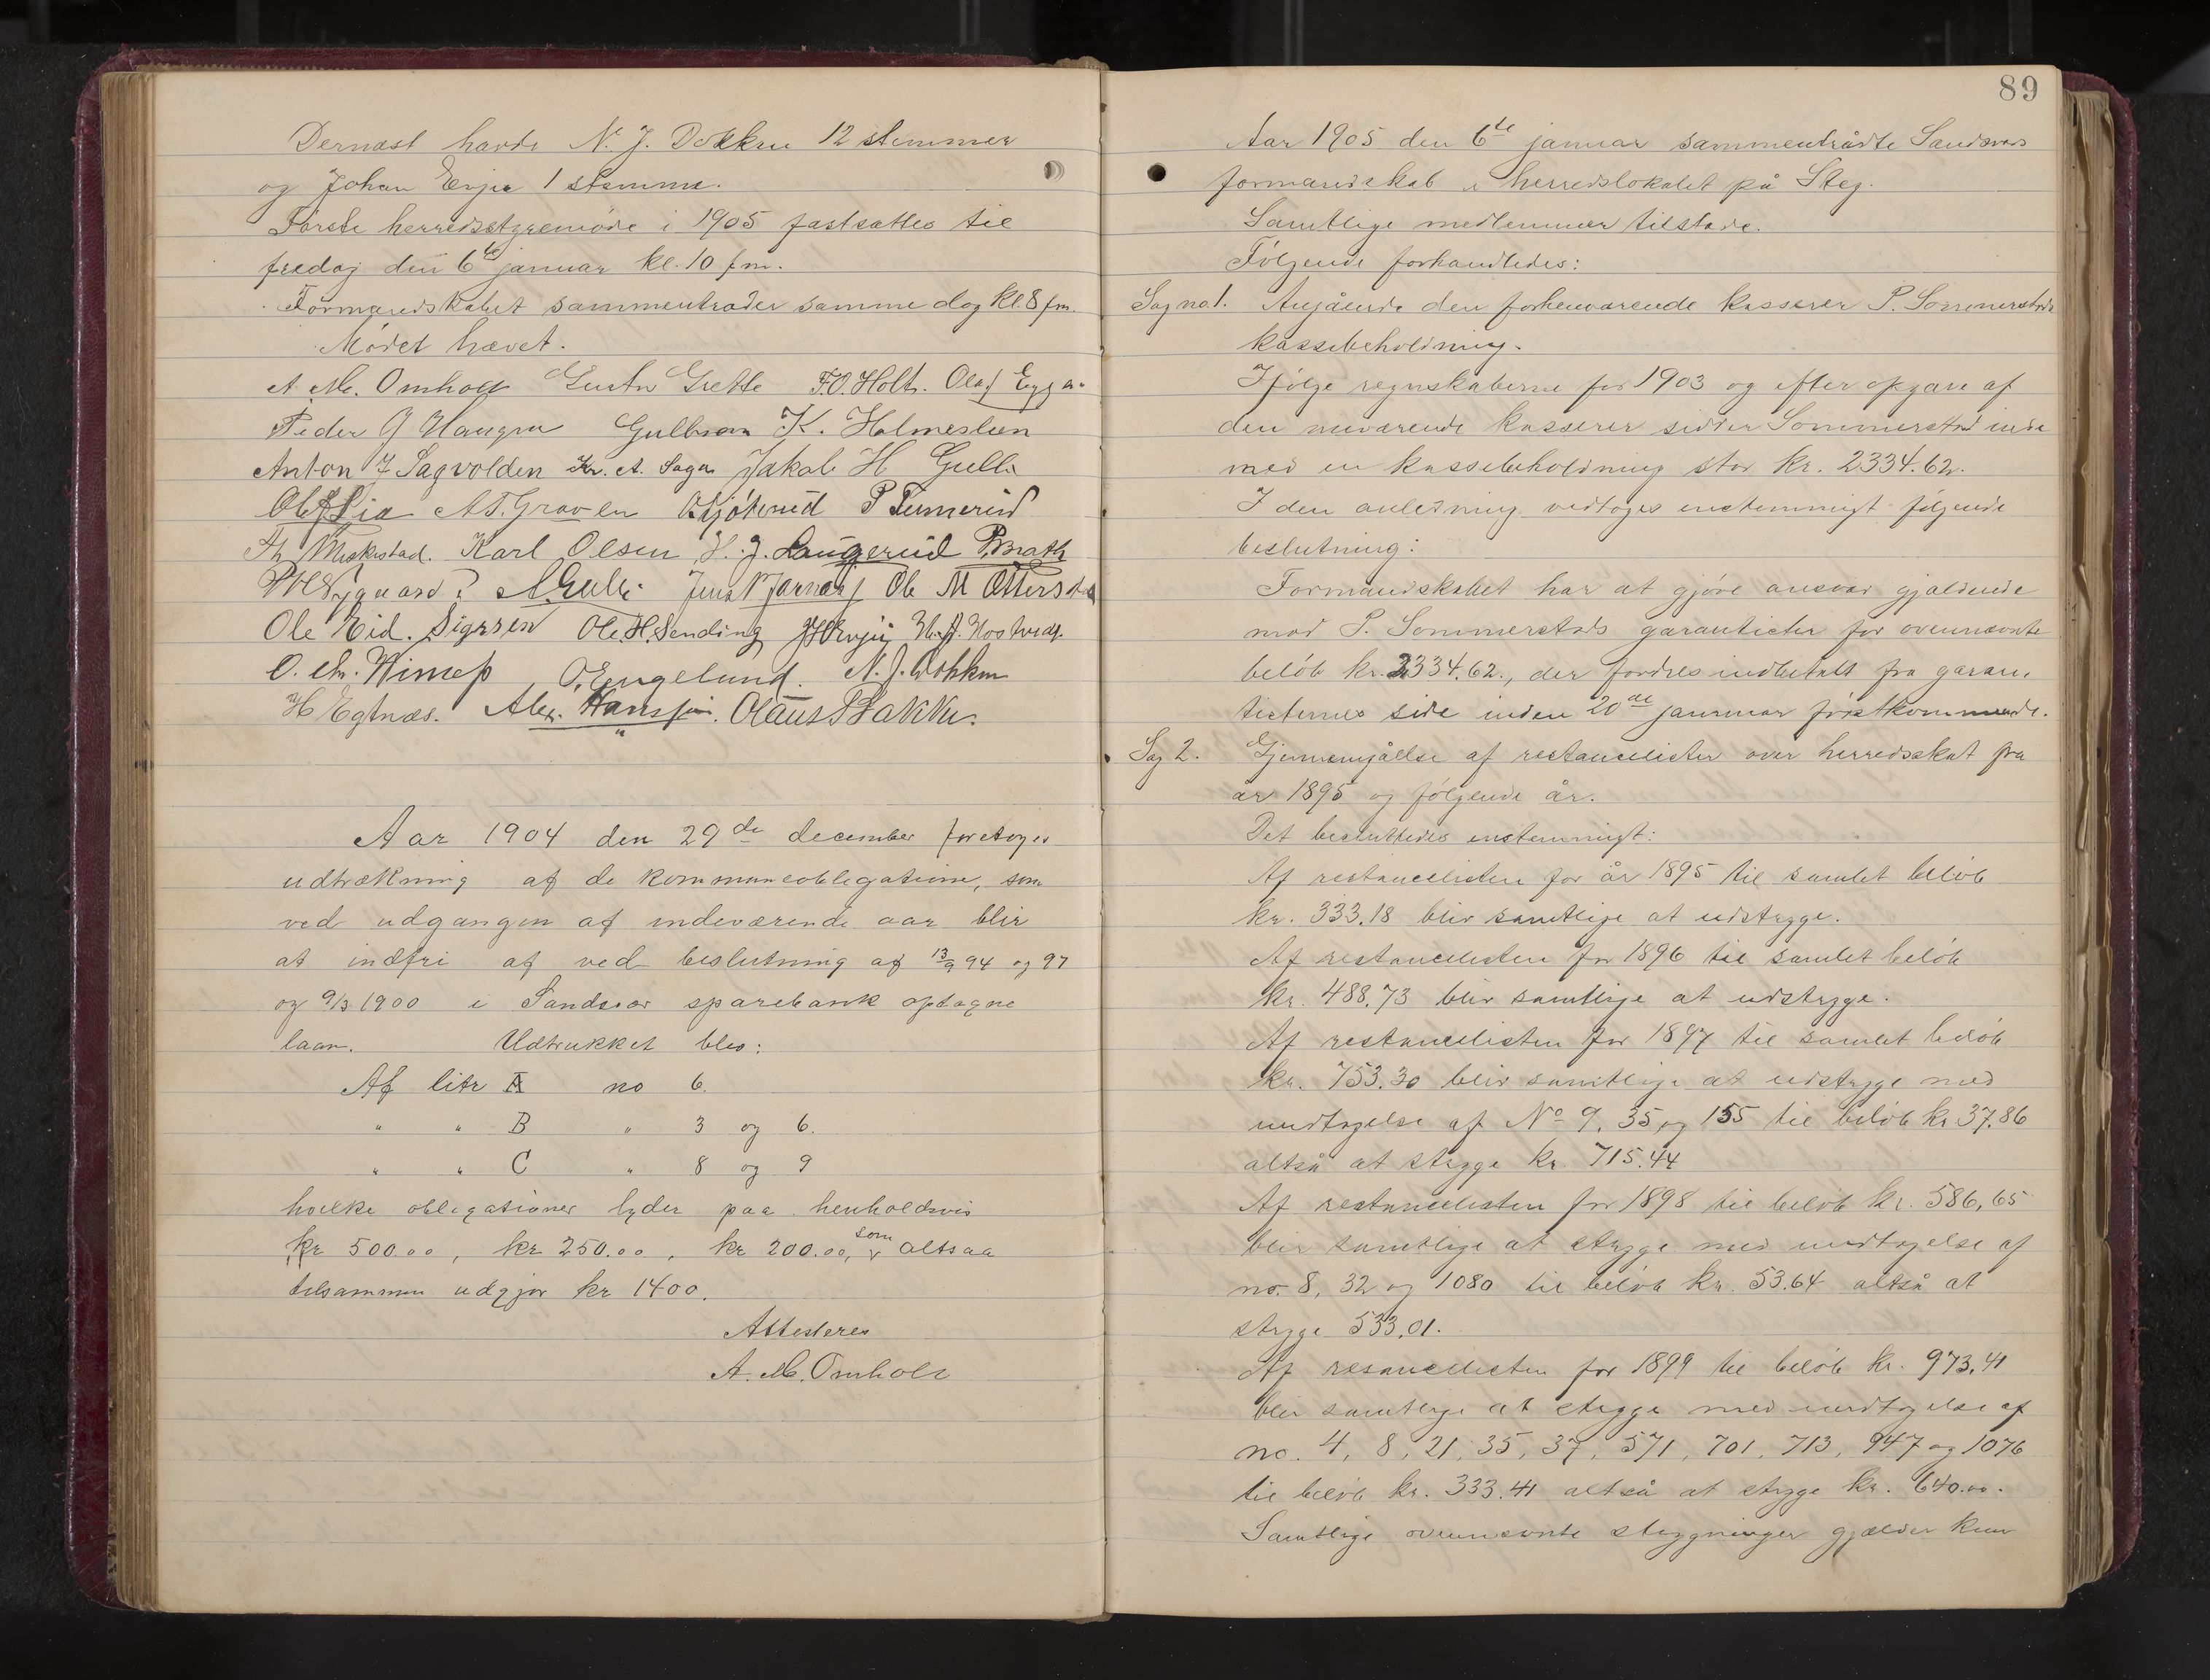 Dernæst havde N. J. Dokken 12 stemmer
og Johan Evju 1 stemme.
Første herredsstyremøde i 1905 fastsattes til
fredag den 6te januar kl. 10 fm.
Formandskabet sammentræder samme dag kl. 8 fm.
Mødet hævet.
A. M. Omholt Gustav Grette F.O. Holt. Olaf
Peder J Haugen Gullbran K. Holmeslien
Anton J Sagvolden Kr. A. Saga Jakob H Gulli
Ole Lia A T. Graven P Temmerud
Karl Olsen H. J. Laugerud
A. Gulli Jens Ole M Otterstad
Ole Eid. Sigrsen Ole H. Sending
O. Chr. Wimep O. Engelund. N. J. Dokken
H Egtnæs. Alex. Hanssen. Olaus Bakke.
Aar 1904 den 29de december foretoges
udtrækning af de kommuneobligationer, som
ved udgangen af indeværende aar blir
at indfri af ved beslutning af 13/9 94 og 97
og 9/3 1900 i Sandsvær sparebank optagne
laan. Udtrukket blev:
Af litr A no 6.
" " B " 3 og 6.
" " C " 8 og 9
hvilke obligationer lyder paa henholdsvis
kr 500.00, kr 250.00, kr 200.00, som altsaa
tilsammen udgjør kr 1400.
Attesteres
A. M. Omholt
89
Aar 1905 den 6te januar sammentrådte Sandsvær
formandskab i herredslokalet på Steg.
Samtlige medlemmer tilstede.
Følgende forhandledes:
Sag no 1. Angående den forhenværende kasserer P. Sommerstads
kassebeholdning.
Ifølge regnskaberne for 1903 og efter opgave af
den nuværende kasserer sidder Sommerstad inde
med en kassebeholdning stor kr. 2334.62.
I den anledning vedtoges enstemmigt følgende
beslutning:
Formandskabet har at gjøre ansvar gjældende
mod P. Sommerstads garantister for ovennævnte
beløb kr. 2334.62., der fordres indbetalt fra garan-
tisternes side inden 20de januar førstkommende.
Sag 2. Gjennemgåelse af restancelister over herredsskat fra
år 1895 og følgende år.
Det besluttedes enstemmigt:
Af restancelisten for år 1895 til samlet beløb
kr. 333.18 blir samtlige at udstryge.
Af restancelisten for 1896 til samlet beløb
kr. 488.73 blir samtlige at udstryge.
Af restancelisten for 1897 til samlet beløb
kr. 753.30 blir samtlige at udstryge med
undtagelse af No 9, 35 og 155 til beløb kr 37.86
altså at stryge kr. 715.44
Af restancelisten for 1898 til beløb kr. 586,65
blir samtlige at stryge med undtagelse af
no. 8, 32 og 1080 til beløb kr. 53.64 altså at
stryge 533.01.
Af resancelisten for 1899 til beløb kr. 973.41
blir samtlige at stryge med undtagelse af
no. 4, 8, 21, 35, 37, 571, 701, 713, 947 og 1076
til beløb kr. 333.41 altså at stryge kr. 640.00.
Samtlige ovennævnte strygninger gjælder kun